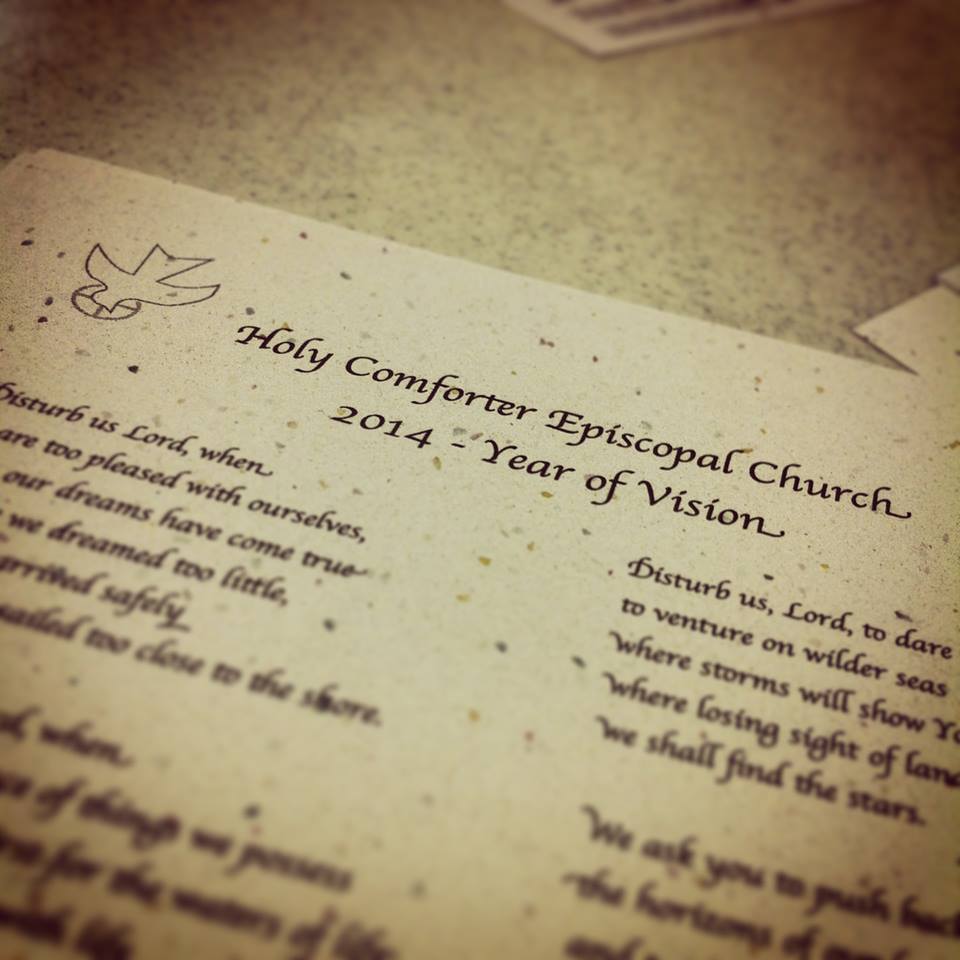 Holy Comforter Episcopal Church
2014 - Year of Vision
Disturb us Lord, when
are too pleased with ourselves,
our dreams have come true
we dreamed too little,
arrived safely
sailed too close to the shore.
when
of things we possess
for the waters of life
life
Disturb us, Lord, to dare
to venture on wilder seas
Where storms will show
Where losing sight of land
We shall find the stars.
We ask you to push back
the horizons of
and